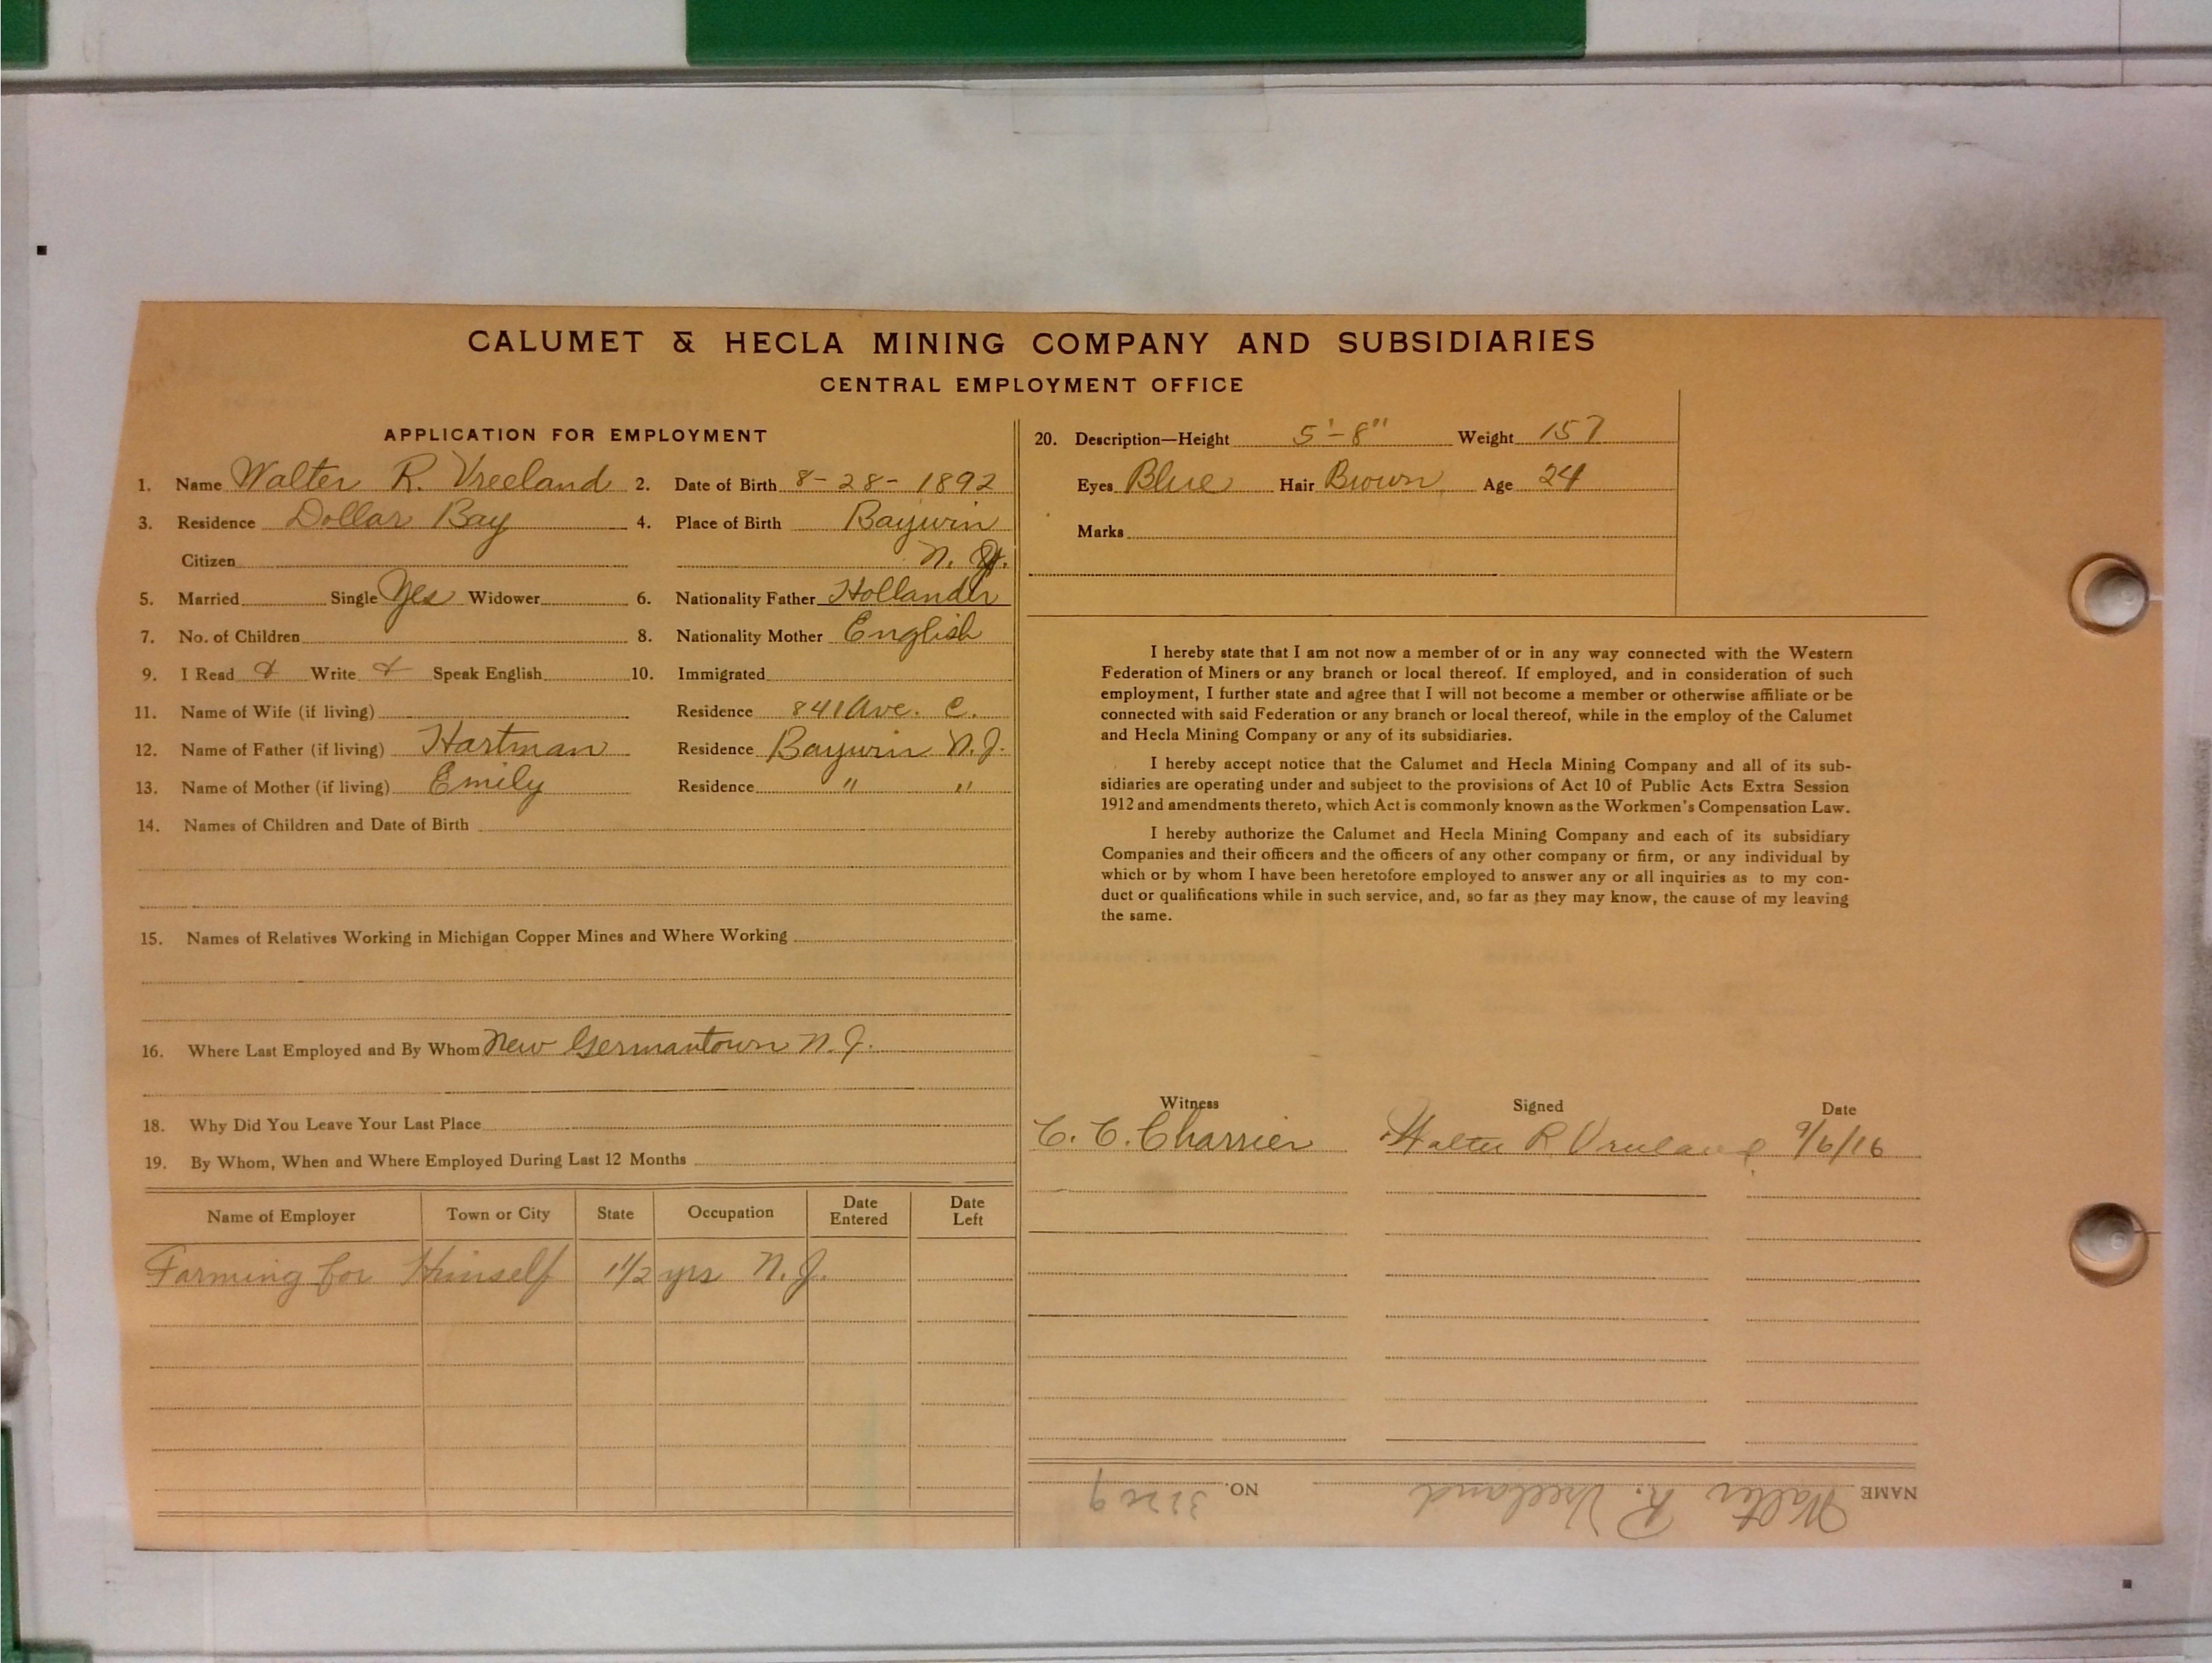 CALUMET & HECLA MINING COMPANY AND SUBSIDIARIES
CENTRAL EMPLOYMENT OFFICE
APPLICATION FOR EMPLOYMENT
1. Name Walter R. Vreeland 2. Date of Birth 8-28-1892
3. Residence Dollar Bay 4. Place of Birth Baywin
Citizen N. J.
5. Married Single Yes Widower 6. Nationality Father Hollander
7. No. of Children 8. Nationality Mother English
9. I Read & Write & Speak English 10. Immigrated
11. Name of Wife (if living) Residence 841 Ave. C.
12. Name of Father (if living) Hartman Residence Baywin N.J.
13. Name of Mother (if living) Emily Residence " "
14. Names of Children and Date of Birth
15. Names of Relatives Working in Michigan Copper Mines and Where Working
16. Where Last Employed and By Whom New Germantown N.J.
18. Why Did You Leave Your Last Place
19. By Whom, When and Where Employed During Last 12 Months
Name of Employer Town or City State Occupation Date Entered Date Left
Farming for Himself 1 1/2 yrs N.J.
20. Description—Height 5'-8" Weight 157
Eyes Blue Hair Brown Age 24
Marks
I hereby state that I am not now a member of or in any way connected with the Western
Federation of Miners or any branch or local thereof. If employed, and in consideration of such
employment, I further state and agree that I will not become a member or otherwise affiliate or be
connected with said Federation or any branch or local thereof, while in the employ of the Calumet
and Hecla Mining Company or any of its subsidiaries.
I hereby accept notice that the Calumet and Hecla Mining Company and all of its sub-
sidiaries are operating under and subject to the provisions of Act 10 of Public Acts Extra Session
1912 and amendments thereto, which Act is commonly known as the Workmen's Compensation Law.
I hereby authorize the Calumet and Hecla Mining Company and each of its subsidiary
Companies and their officers and the officers of any other company or firm, or any individual by
which or by whom I have been heretofore employed to answer any or all inquiries as to my con-
duct or qualifications while in such service, and, so far as they may know, the cause of my leaving
the same.
Witness Signed Date
C. C. Charrier Walter R Vreeland 9/6/16
NAME Walter R. Vreeland NO.